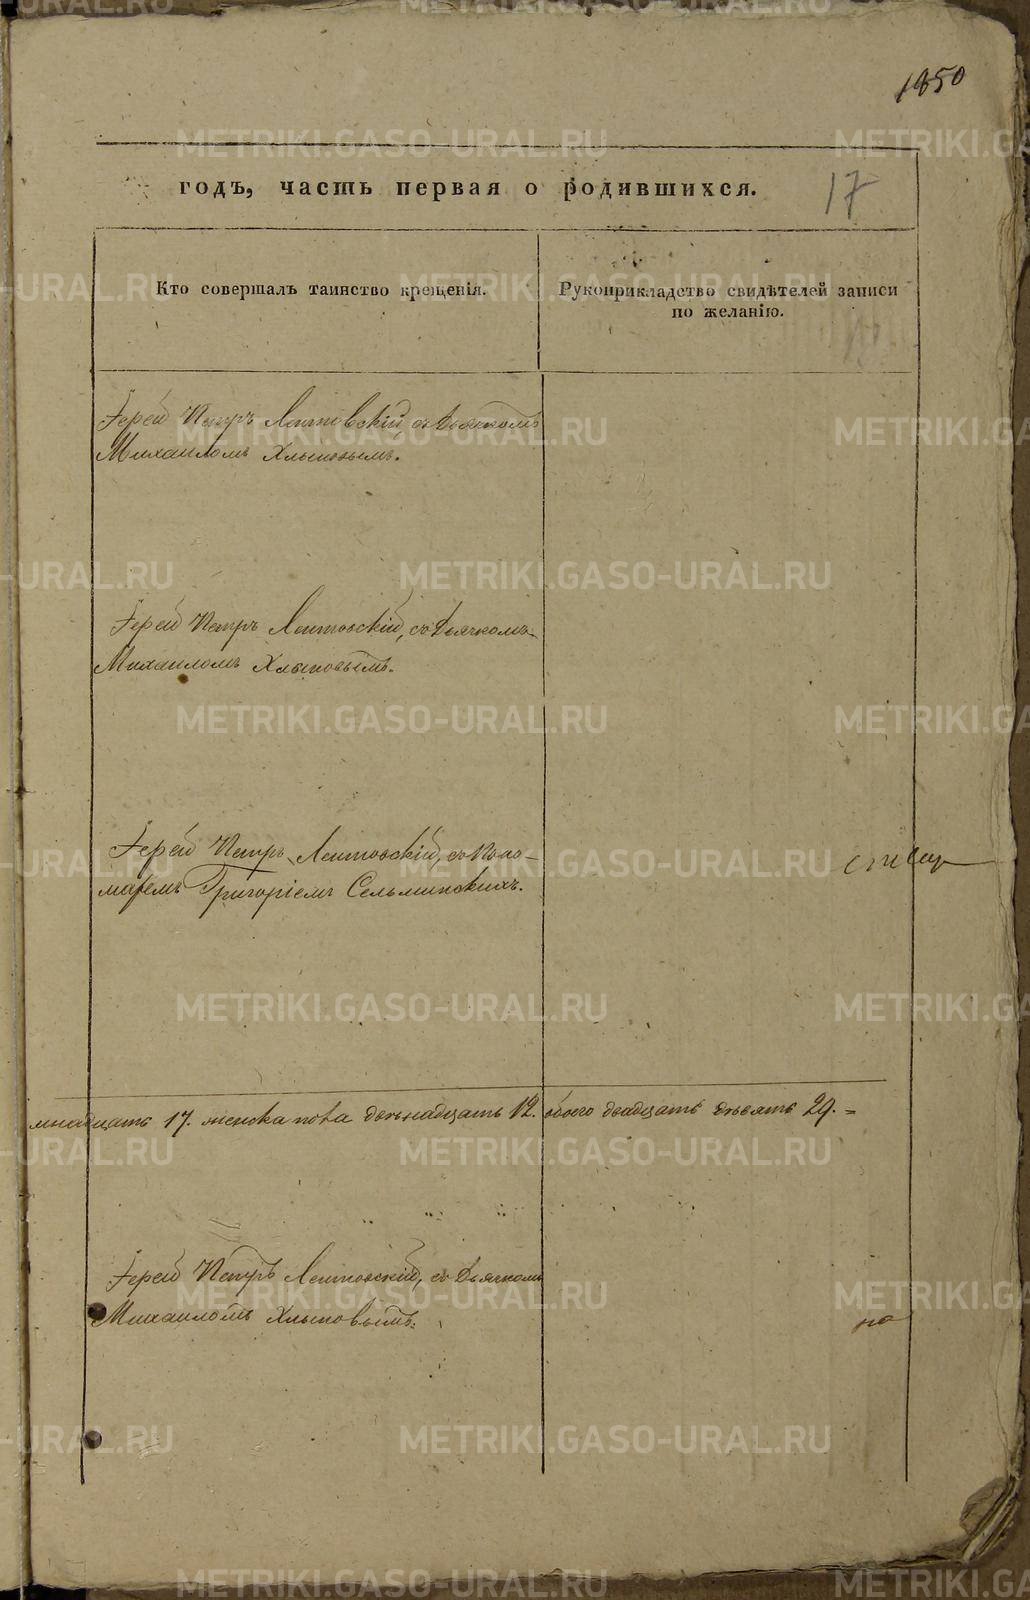 1850
годъ, часть первая о родившихся.
17
Кто совершалъ таинство крещенія.
Рукоприкладство свидѣтелей записи
по желанію.
Іерей Петръ Лентовскій, съ Дьячкомъ
Михаиломъ Хлыновымъ.
Іерей Петръ Лентовскій, съ Дьячкомъ
Михаиломъ Хлыновымъ.
Іерей Петръ Лентовскій, съ Поно-
маремъ Григоріемъ Сельминскихъ.
мнадцать 17. женска пола двѣнадцать 12. обоего двадцать девять 29.=
Іерей Петръ Лентовскій, съ Дьячкомъ
Михаиломъ Хлыновымъ.
по
METRIKI.GASO-URAL.RU